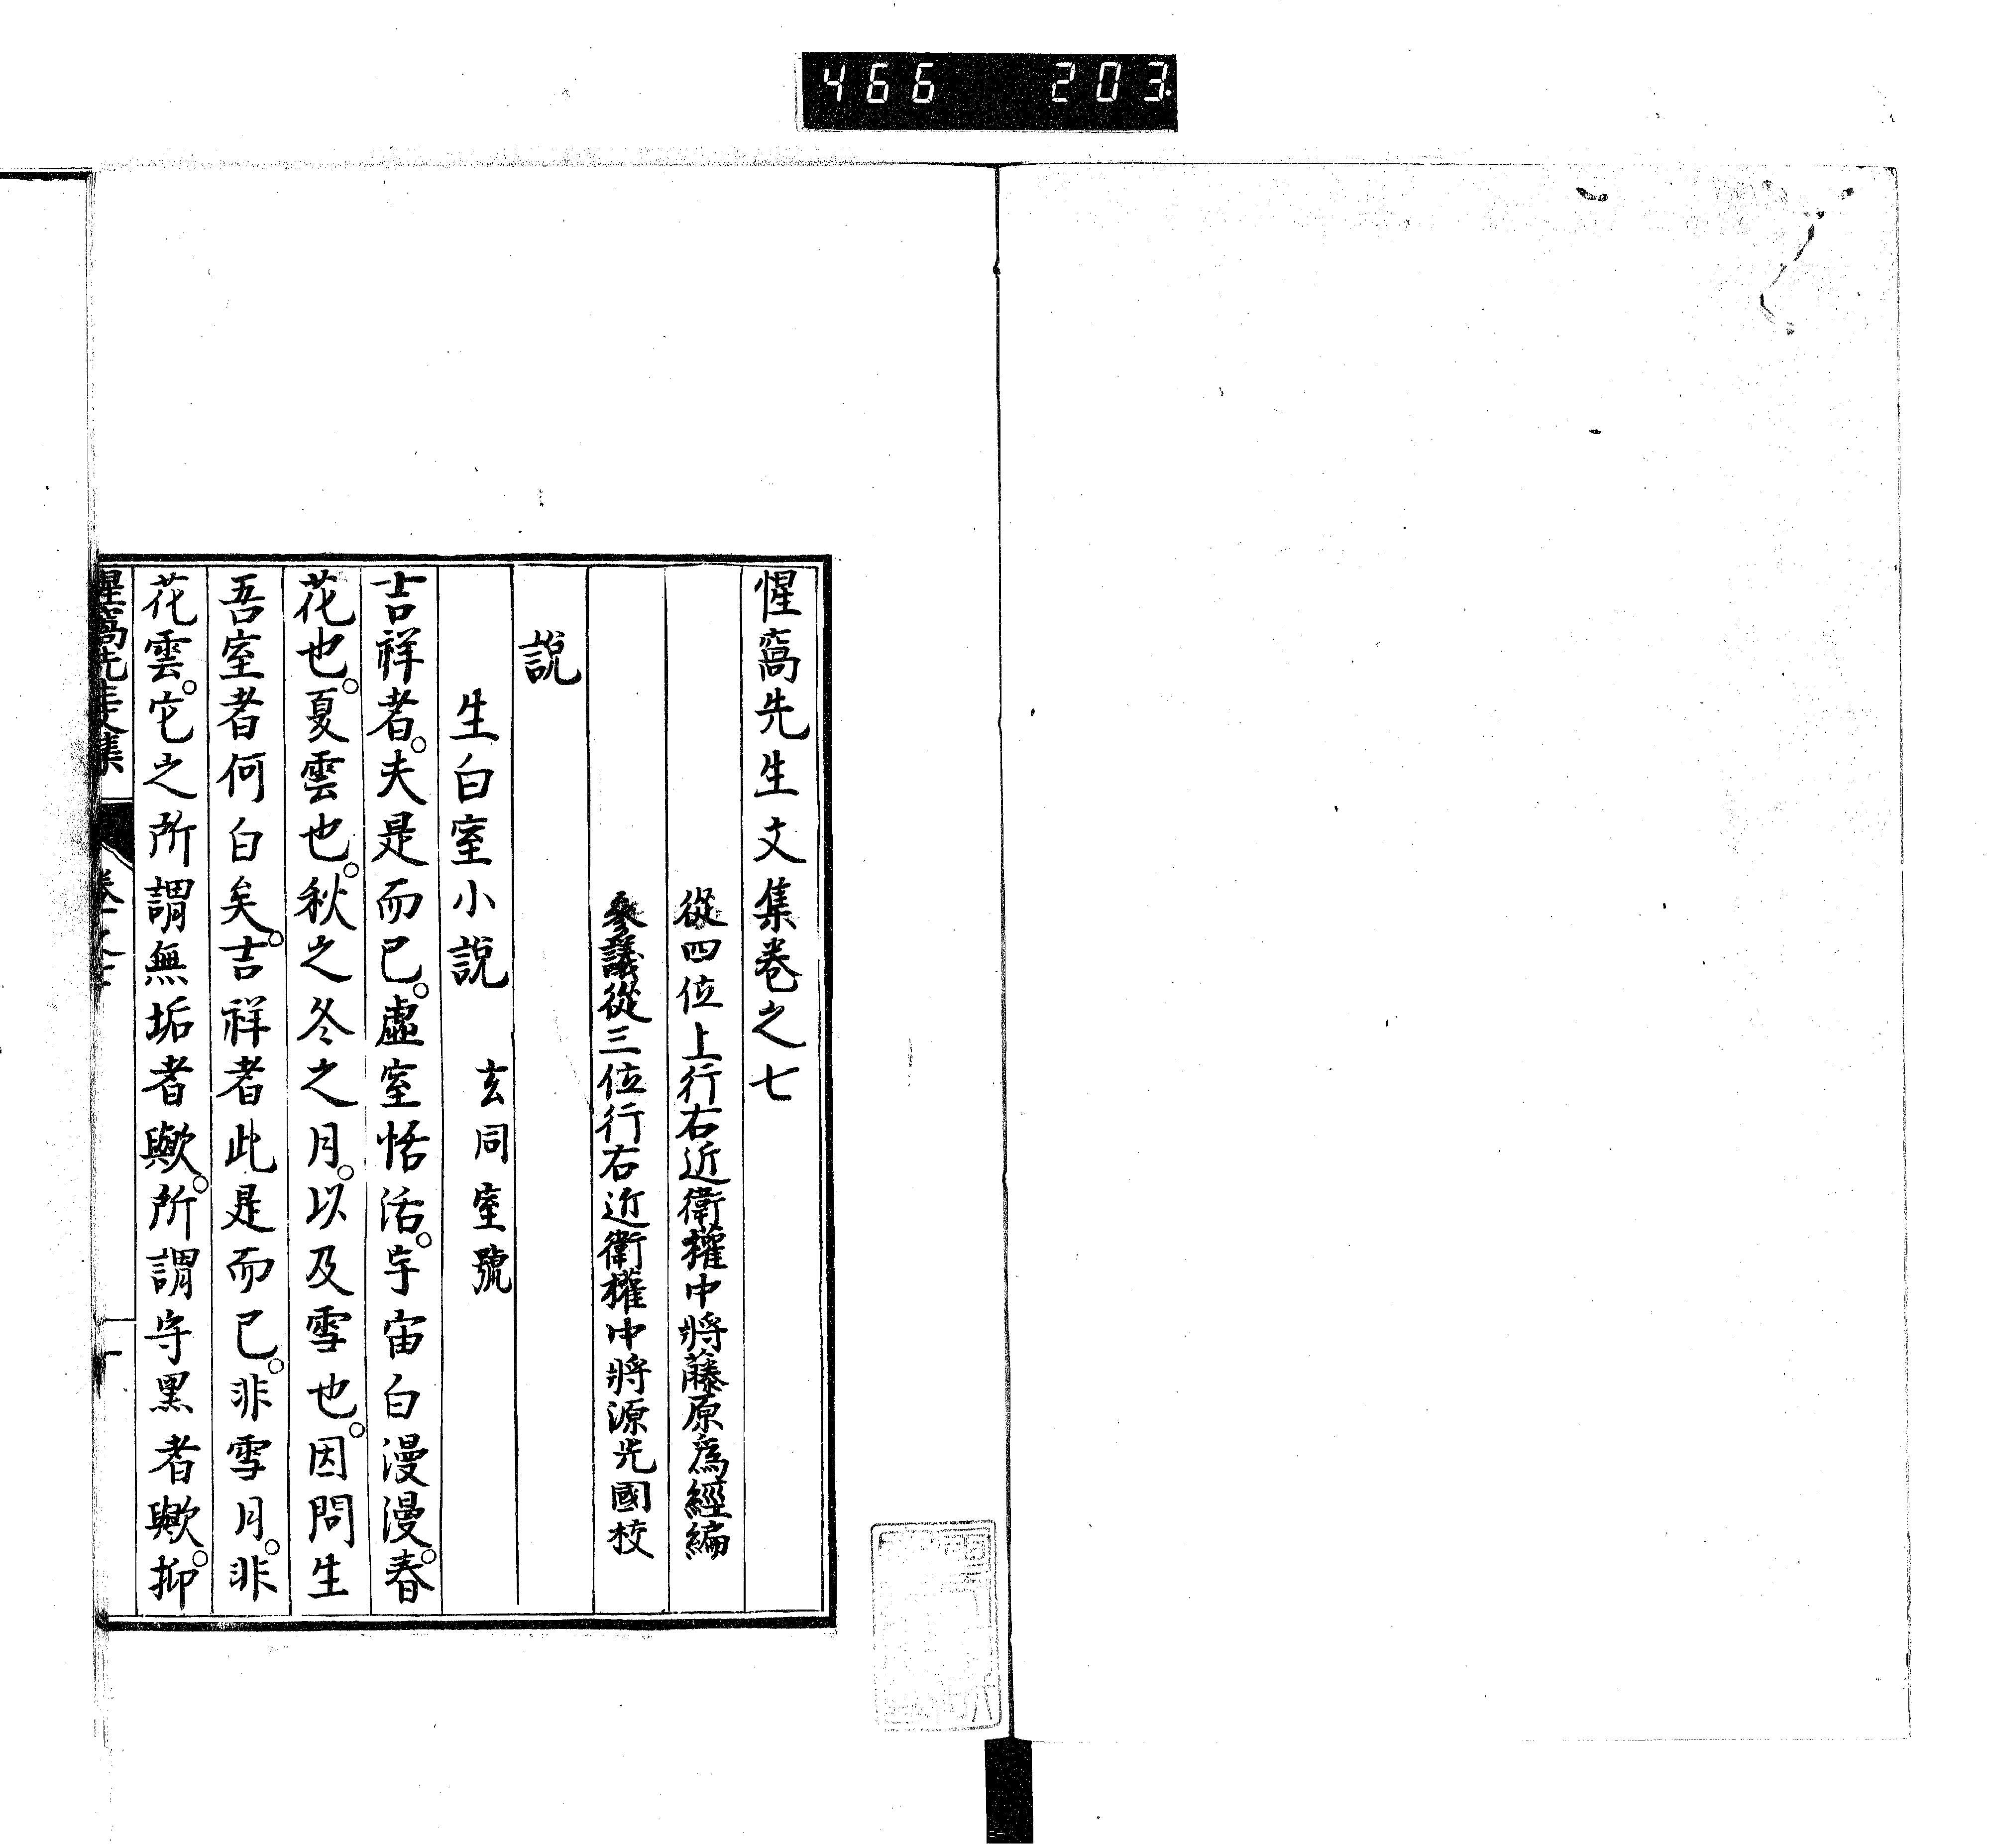 466 203.
惺窩先生文集卷之七
從四位上行右近衛權中將藤原爲經編
參議從三位行右近衛權中將源光國校
說
生白室小說 玄同室號
吉祥者。夫是而已。虛室恬活。宇宙白漫漫。春
花也。夏雲也。秋之冬之月。以及雪也。因問生
吾室者何白矣。吉祥者此是而已。非雪月。非
花雲。它之所謂無垢者歟。所謂守黑者歟。抑
惺窩先生文集